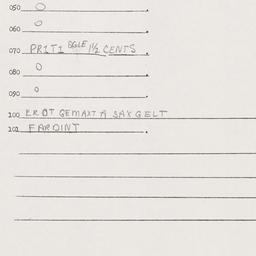 050 O
060 O
070 PRITI BGLE 1½ CENTS
080 O
090 O
100 EROT GEMAXT A SAX GELT
101 FAROINT